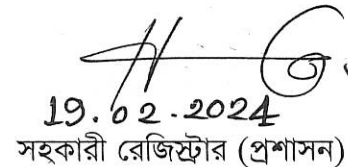 19.02.2024
সহকারী রেজিস্ট্রার (প্রশাসন)